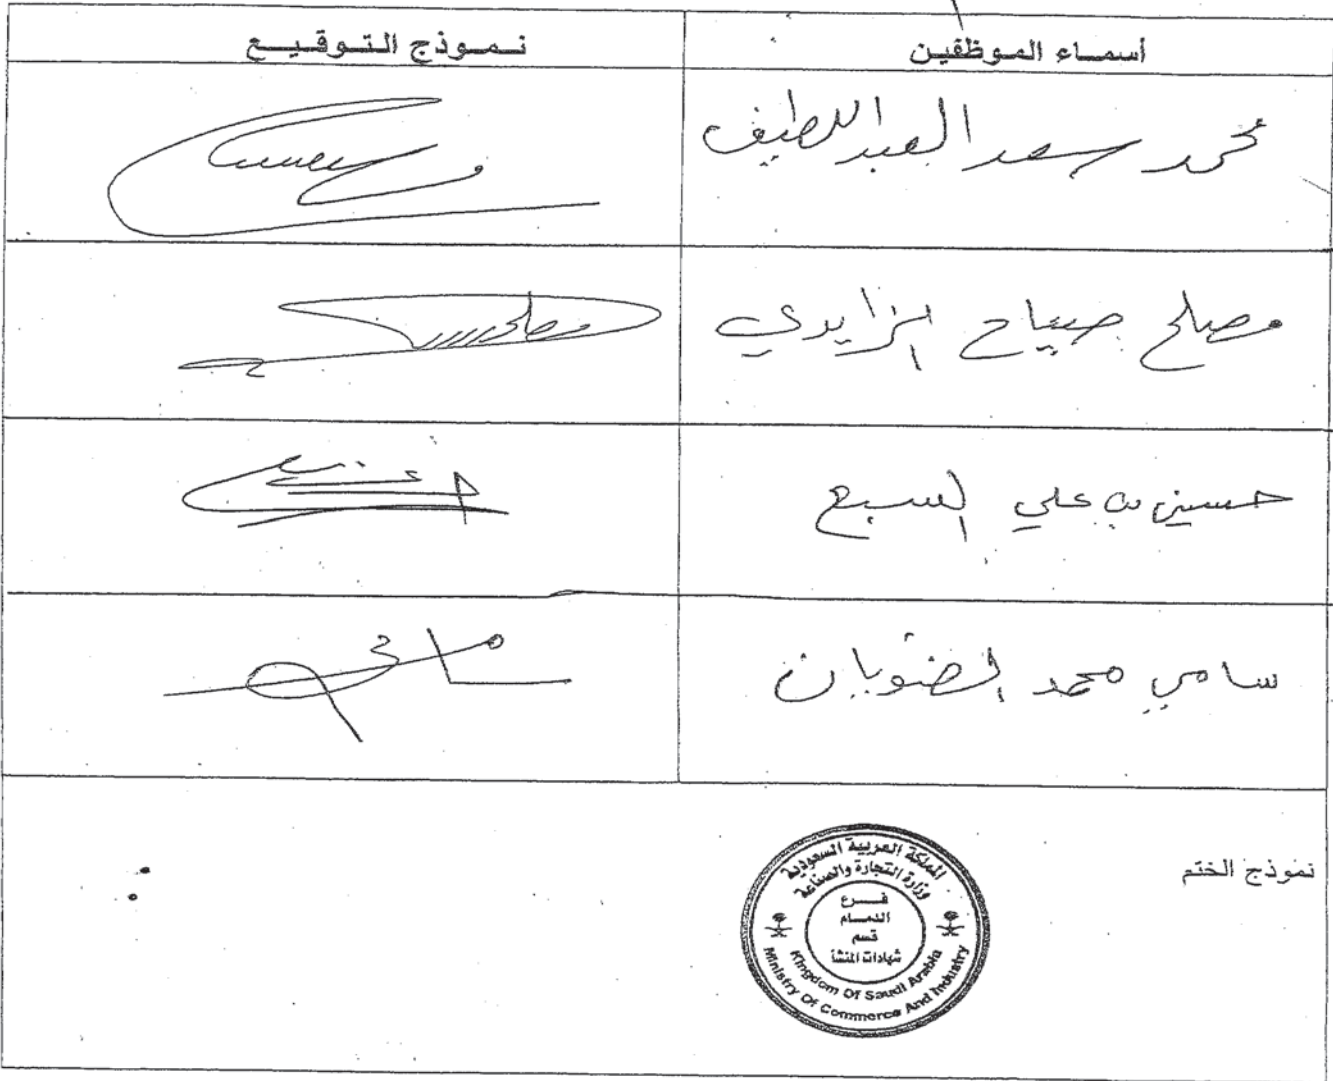 أسماء الموظفين
نموذج التوقيع
محمد سعد العبد اللطيف
مصلح صياح الزايدي
مصلح
حسين بن علي السبع
سامي محمد الضوبان
نموذج الختم
المملكة العربية السعودية
وزارة التجارة والصناعة
فرع
الدمام
قسم
شهادات المنشأ
Kingdom Of Saudi Arabia
Ministry Of Commerce And Industry